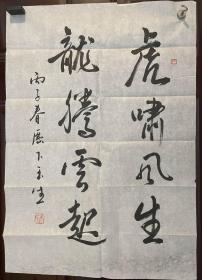 虎啸風生
龍騰雲起
丙子春 下玉生